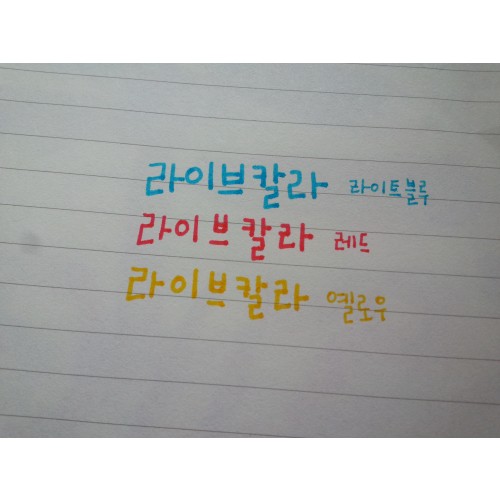 라이브칼라 라이트블루
라이브칼라 레드
라이브칼라 옐로우